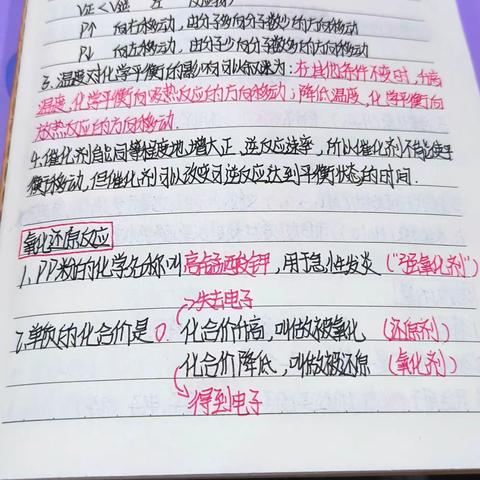 V正<V逆 左 反应物
P↑ 向右移动,由分子多向分子数少的方向移动
P↓ 向左移动,由分子少向分子数多的方向移动
3.温度对化学平衡的影响可以概述为:在其他条件不变时,升高
温度,化学平衡向吸热反应的方向移动;降低温度,化学平衡向
放热反应的方向移动.
4.催化剂能同等程度地增大正、逆反应速率,所以催化剂不能使平
衡移动,但催化剂可以改变可逆反应达到平衡状态的时间.
氧化还原反应
1.PP粉的化学名称叫高锰酸钾,用于急性发炎("强氧化剂")
→失去电子
2.单质的化合价是0. 化合价升高,叫做被氧化 (还原剂)
化合价降低,叫做被还原 (氧化剂)
→得到电子